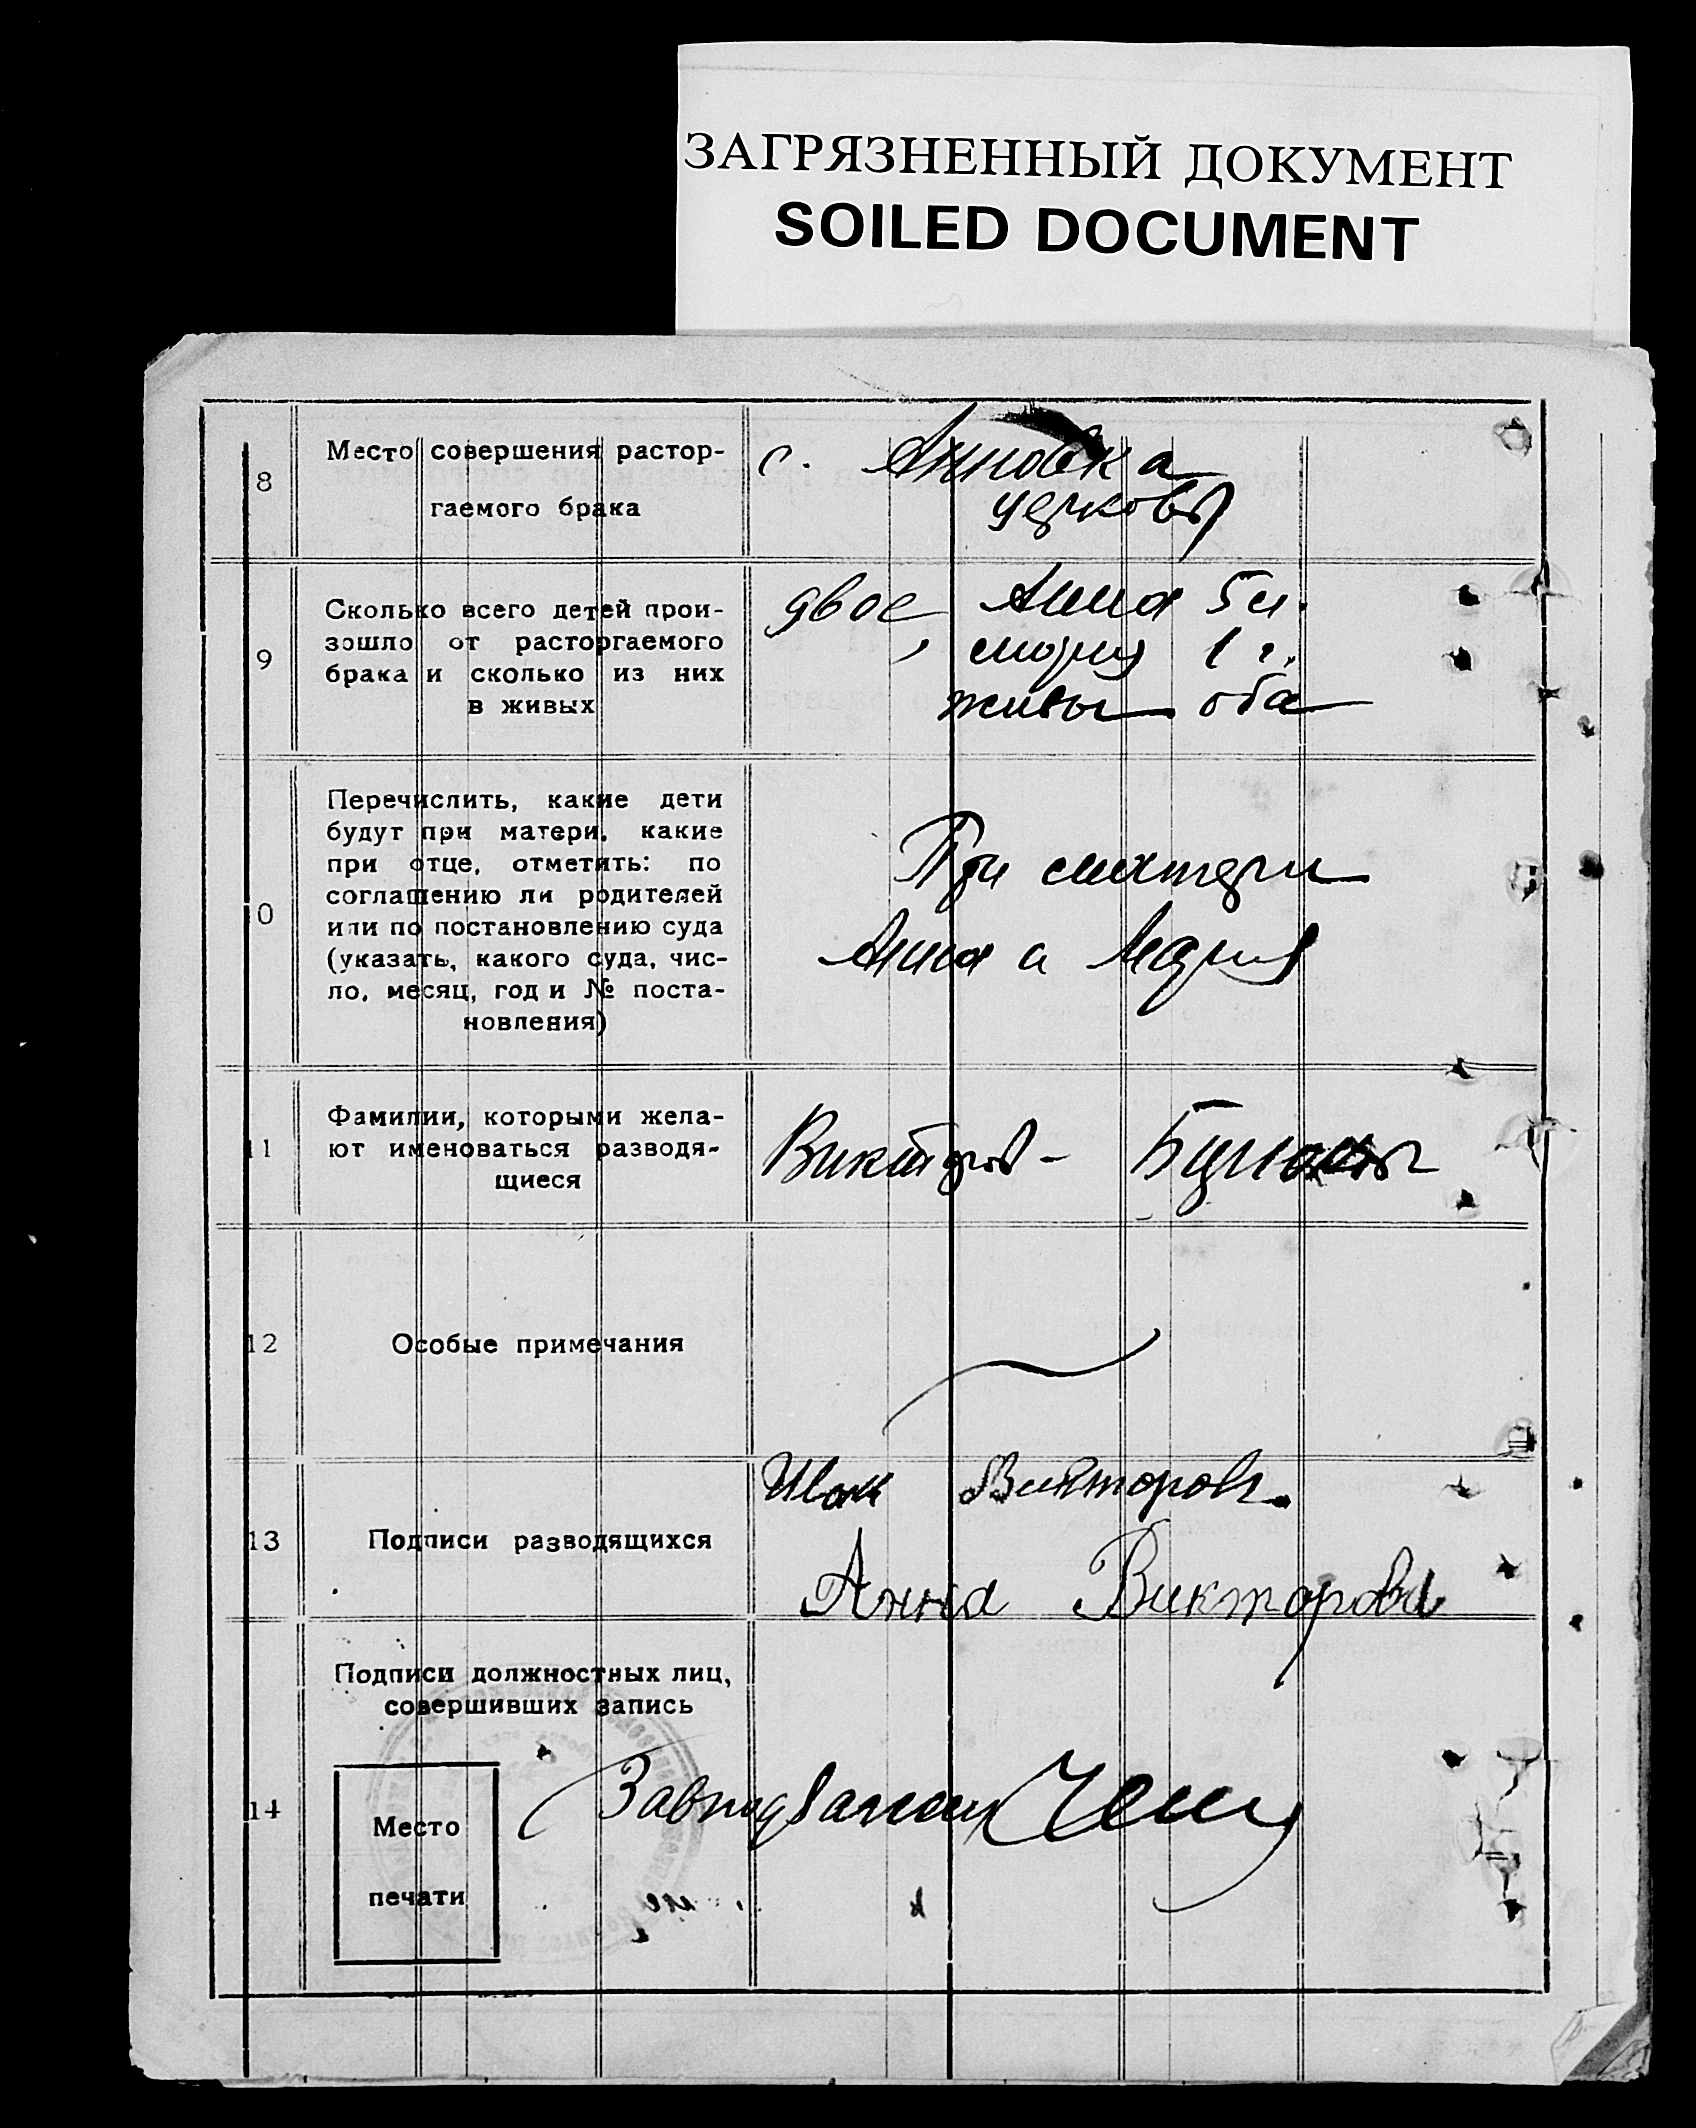 ЗАГРЯЗНЕННЫЙ ДОКУМЕНТ
SOILED DOCUMENT
8
Место совершения растор-
гаемого брака
с. Анновка
церковь
9
Сколько всего детей прои-
зошло от расторгаемого
брака и сколько из них
в живых
двое, Анна 5 л.
Мария 1 г.
живы оба
10
Перечислить, какие дети
будут при матери, какие
при отце, отметить: по
соглашению ли родителей
или по постановлению суда
(указать, какого суда, чис-
ло, месяц, год и № поста-
новления)
При матери
Анна и Мария
11
Фамилии, которыми жела-
ют именоваться разводя-
щиеся
Викторов -
12
Особые примечания
13
Подписи разводящихся
Иван Викторов
Анна Викторова
14
Подписи должностных лиц,
совершивших запись
Место
печати